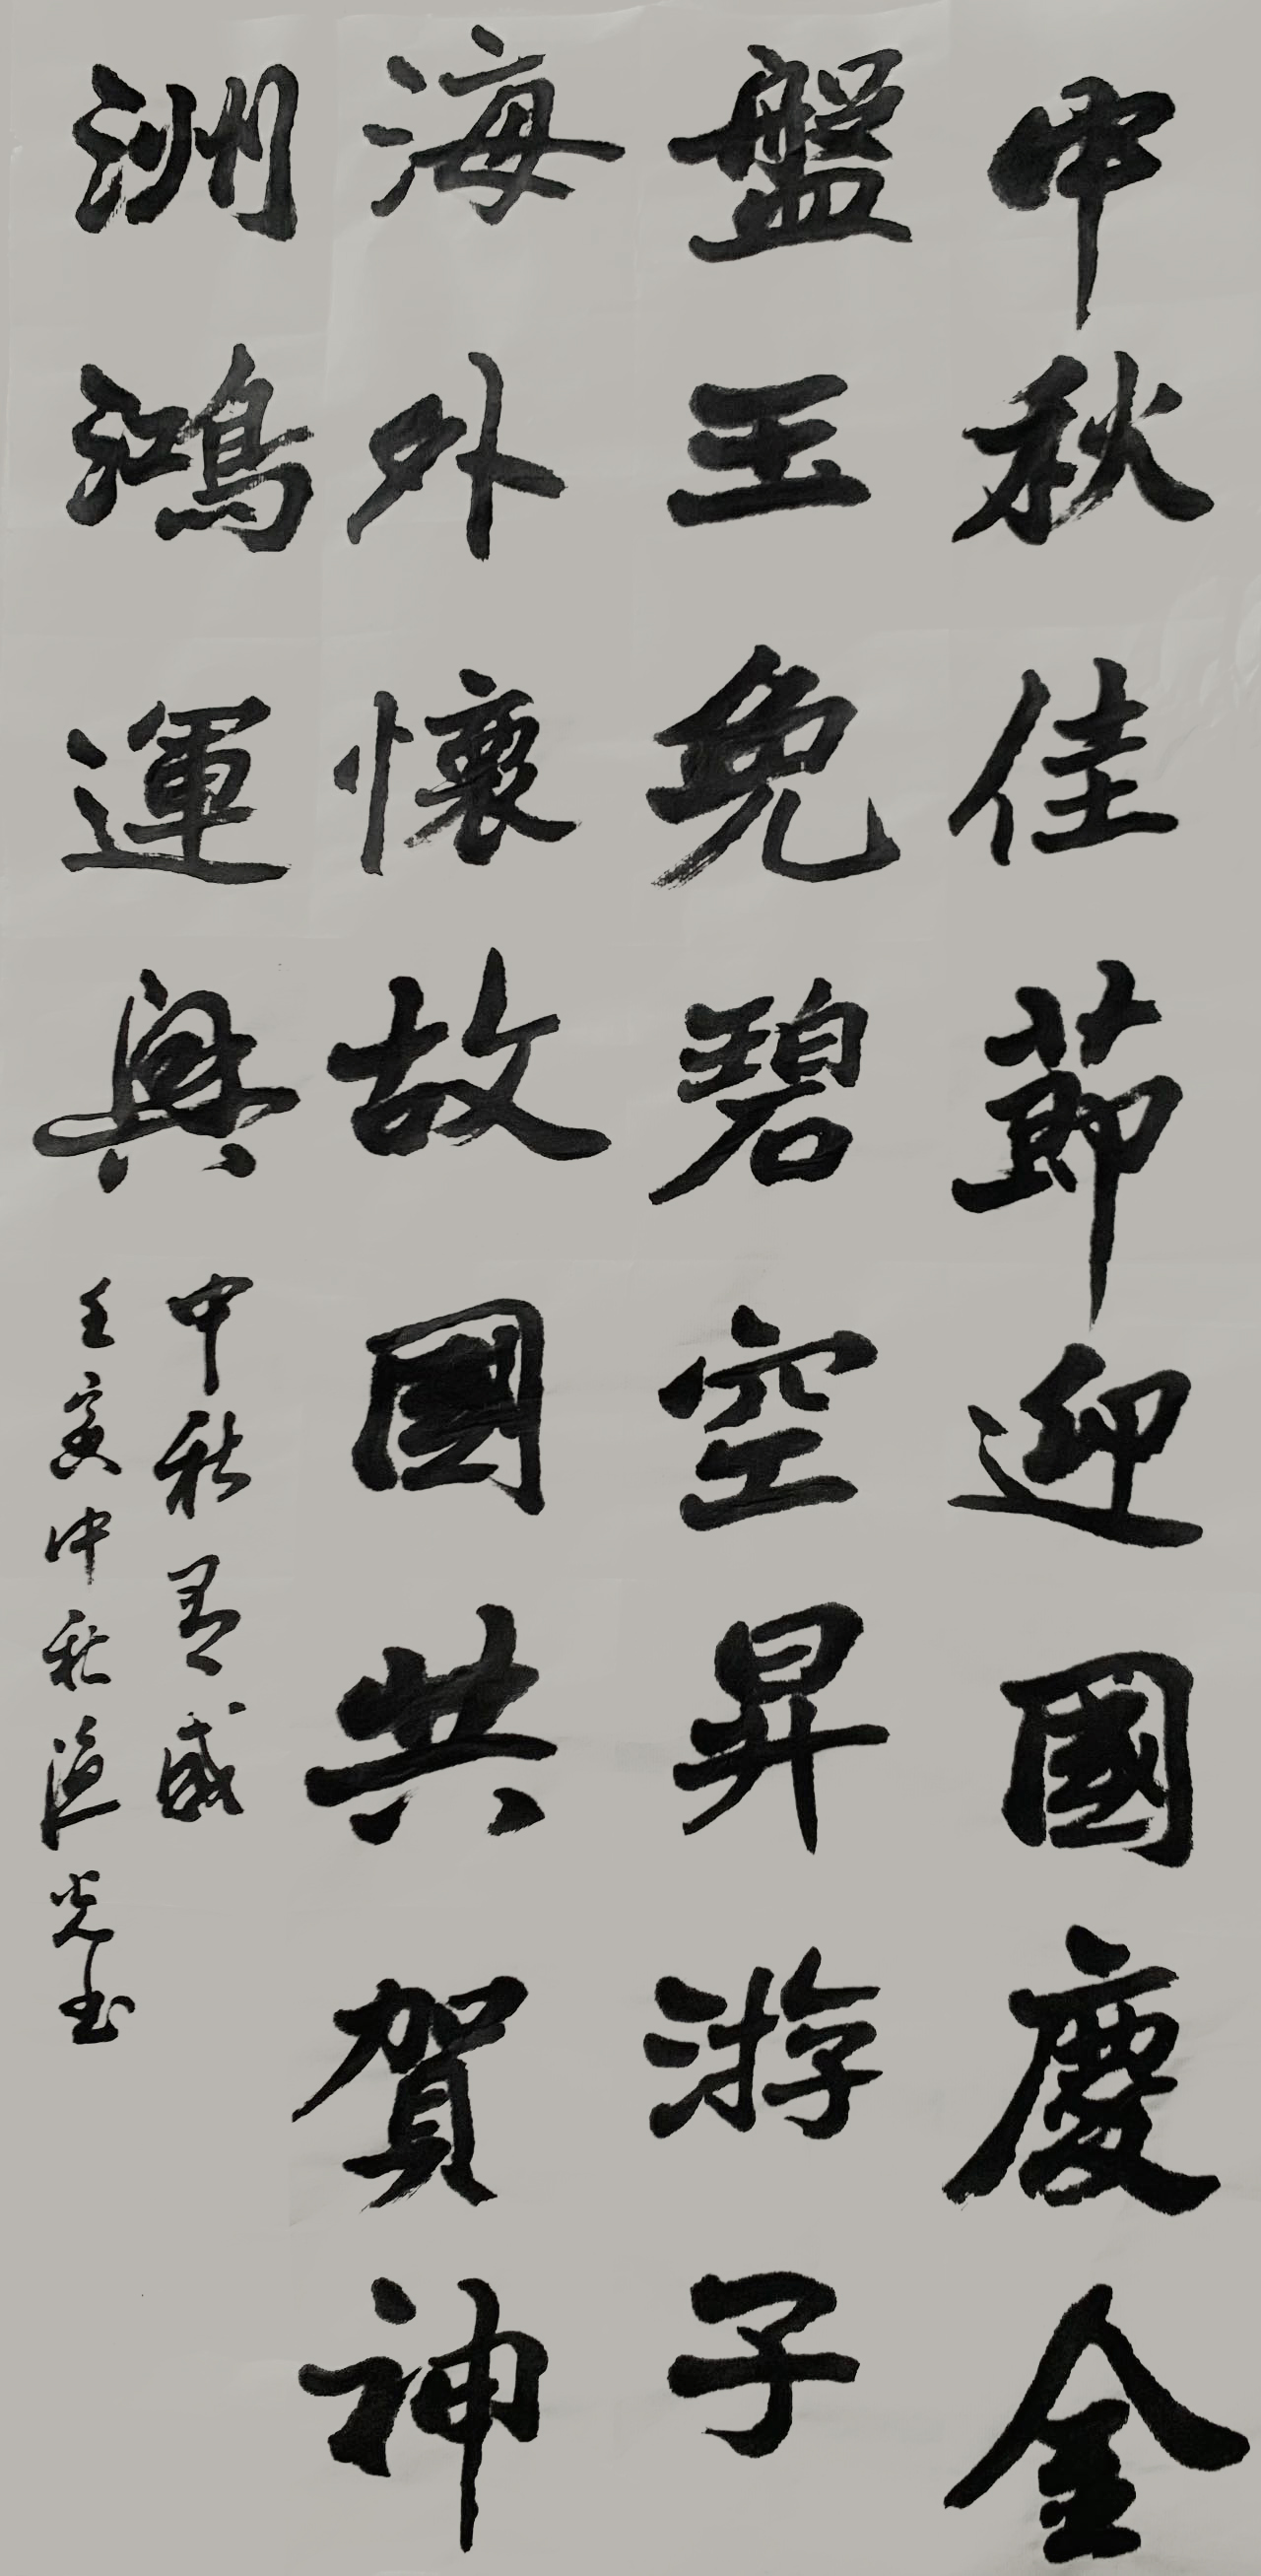 中秋佳節迎國慶金
盤玉兔碧空昇游子
海外懷故國共賀神
洲鴻運興
中秋有感
壬寅中秋 光書